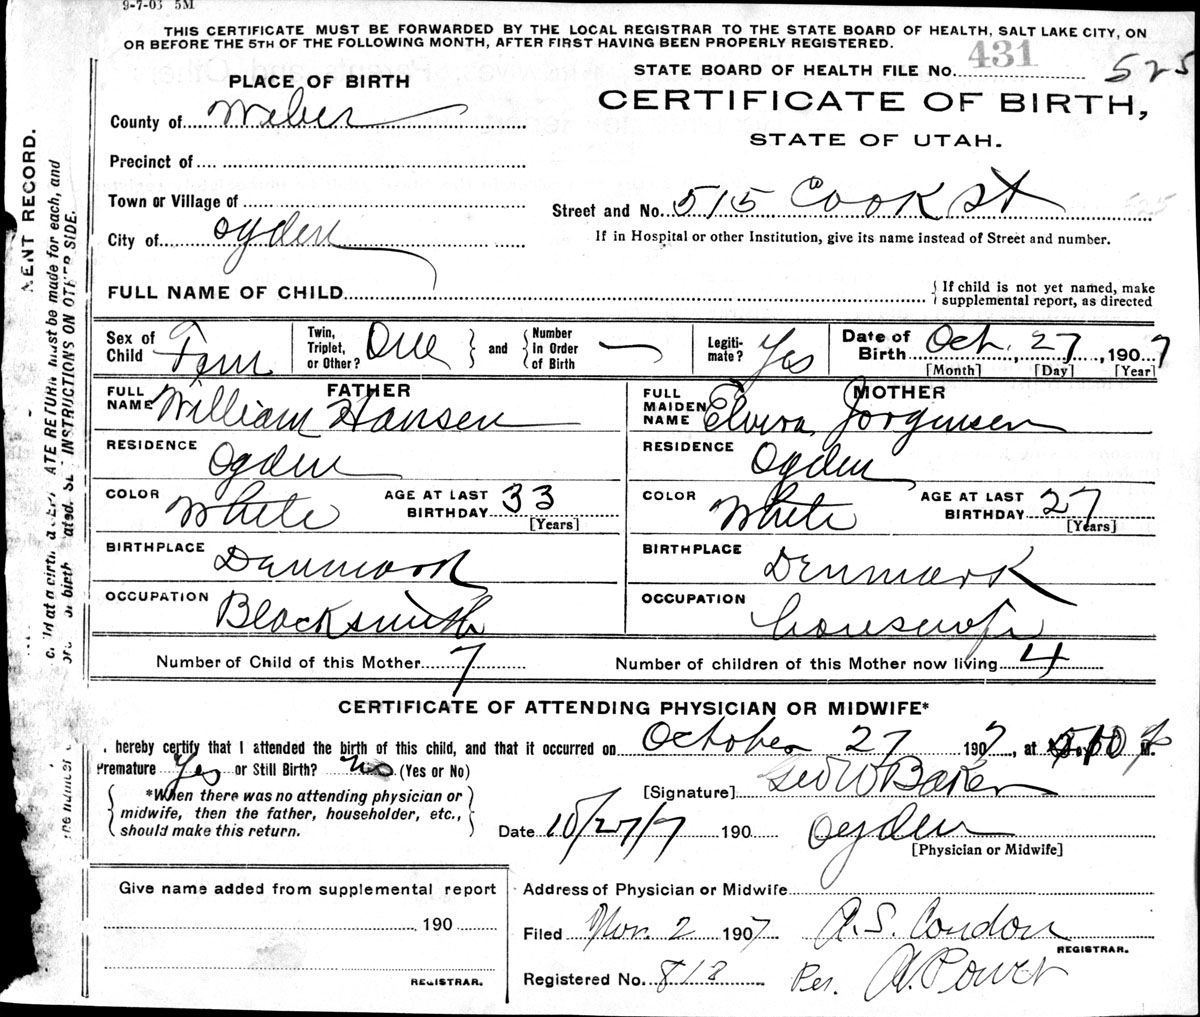 9-7-03 5M
THIS CERTIFICATE MUST BE FORWARDED BY THE LOCAL REGISTRAR TO THE STATE BOARD OF HEALTH, SALT LAKE CITY, ON
OR BEFORE THE 5TH OF THE FOLLOWING MONTH, AFTER FIRST HAVING BEEN PROPERLY REGISTERED.
STATE BOARD OF HEALTH FILE No. 431 525
PLACE OF BIRTH
CERTIFICATE OF BIRTH,
STATE OF UTAH.
County of Weber
Precinct of
Town or Village of
City of Ogden
Street and No. 515 Cook St
If in Hospital or other Institution, give its name instead of Street and number.
FULL NAME OF CHILD
{ If child is not yet named, make
supplemental report, as directed
Sex of Child Fem
Twin, Triplet, or Other? One } and { Number In Order of Birth —
Legiti- mate? Yes
Date of Birth Oct. 27, 1907
[Month] [Day] [Year]
FATHER
FULL NAME William Hansen
MOTHER
FULL MAIDEN NAME Elvira Jorgensen
RESIDENCE Ogden
RESIDENCE Ogden
COLOR White AGE AT LAST BIRTHDAY 33 [Years]
COLOR White AGE AT LAST BIRTHDAY 27 [Years]
BIRTHPLACE Denmark
BIRTHPLACE Denmark
OCCUPATION Blacksmith
OCCUPATION housewife
Number of Child of this Mother 7
Number of children of this Mother now living 4
CERTIFICATE OF ATTENDING PHYSICIAN OR MIDWIFE*
I hereby certify that I attended the birth of this child, and that it occurred on October 27 1907, at M.
Premature Yes or Still Birth? No (Yes or No)
[Signature] Geo W Baker
{ *When there was no attending physician or
midwife, then the father, householder, etc.,
should make this return. }
Date 10/27/7 190 Ogden
[Physician or Midwife]
Give name added from supplemental report
190
REGISTRAR.
Address of Physician or Midwife
Filed Nov. 2 1907 A. S. Condon
REGISTRAR.
Registered No. 813 Per. A. Power
ENT RECORD.
ATE RETURN must be made for each, and
INSTRUCTIONS ON OTHER SIDE.